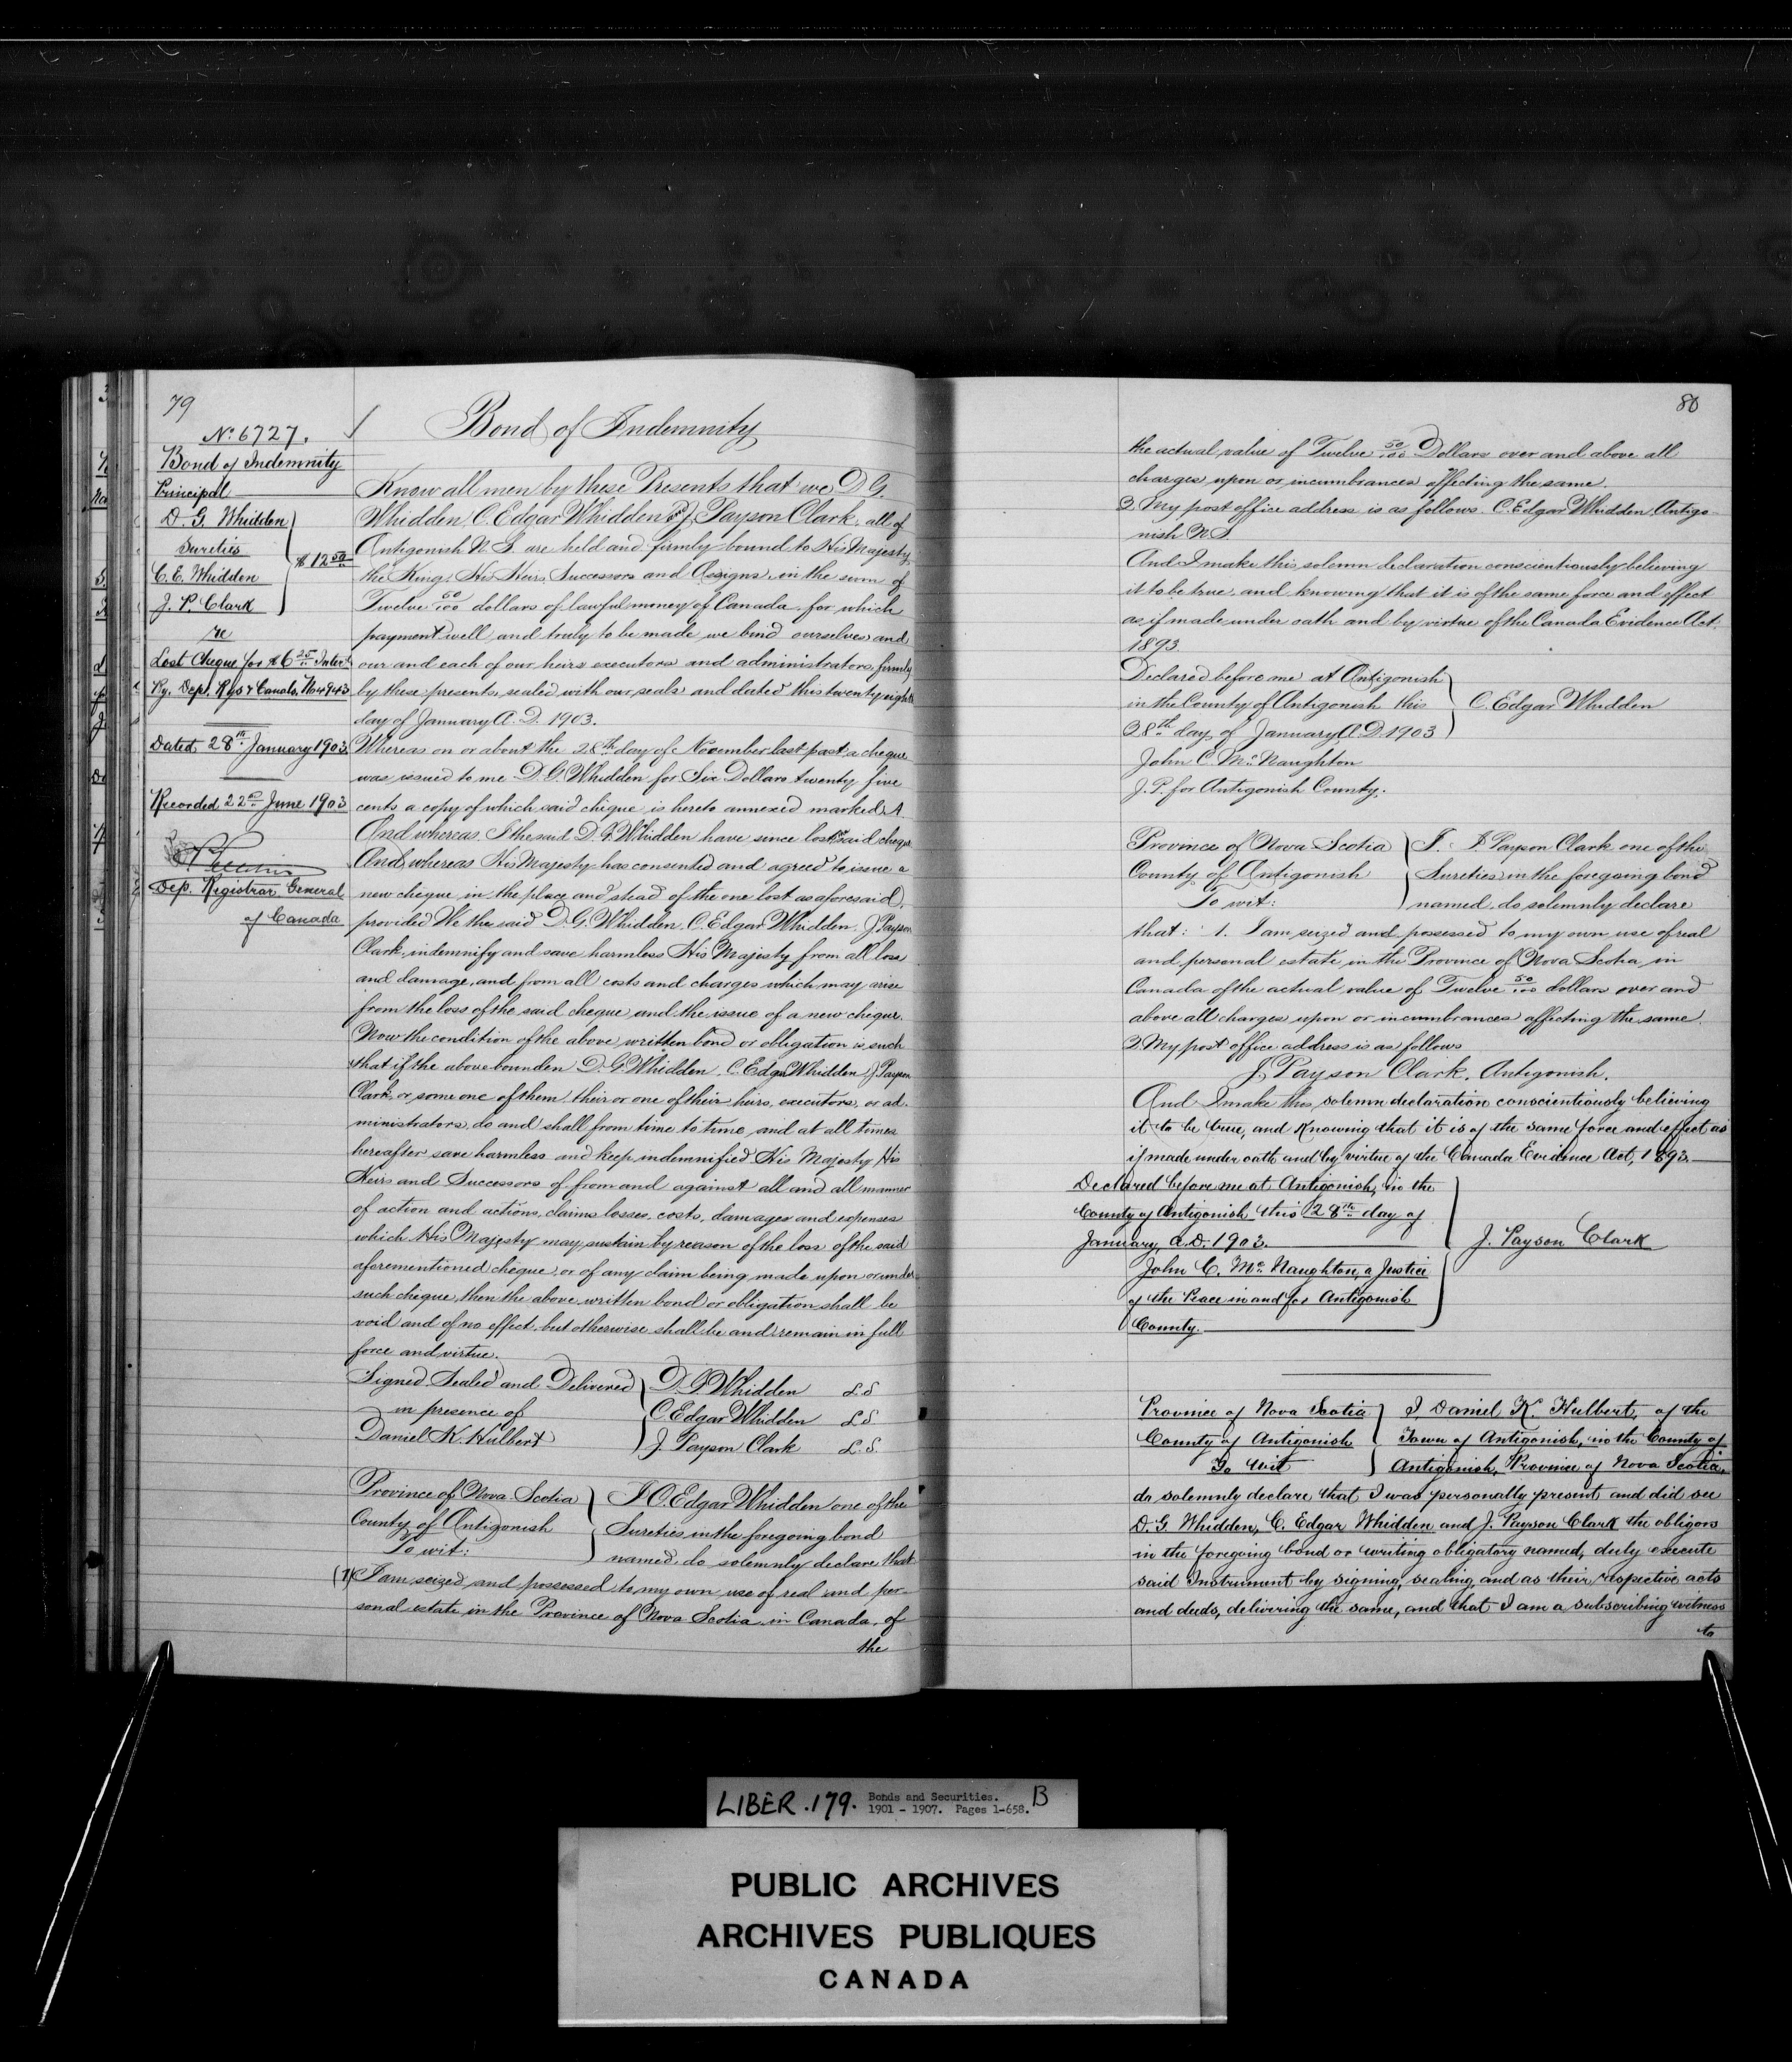 79
No. 6727.
Bond of Indemnity
Principal
D. G. Whidden
Sureties
$12 50
C. E. Whidden
J. P. Clark
re
Lost Cheque for $6 25 Inter
Ry. Dep. Rys & Canals, No 4943
Dated, 28th January 1903
Recorded 22nd June 1903
Dep. Registrar General
of Canada
Bond of Indemnity
Know all men by these Presents that we D. G.
Whidden C. Edgar Whidden & J. Payson Clark, all of
Antigonish N. S. are held and firmly bound to His Majesty
the King, His Heirs, Successors and Assigns, in the sum of
Twelve 50/100 dollars of lawful money of Canada, for which
payment well and truly to be made we bind ourselves and
our and each of our heirs executors and administrators, firmly
by these presents, sealed with our seals and dated this twenty eighth
day of January A. D. 1903.
Whereas on or about the 28th day of November last past a cheque
was issued to me D. G. Whidden for Six Dollars twenty five
cents a copy of which said cheque is hereto annexed marked A
And whereas. I the said D. G. Whidden have since lost said cheque
And whereas His Majesty has consented and agreed to issue a
new cheque in the place and stead of the one lost as aforesaid,
provided We the said D. G. Whidden, C. Edgar Whidden, J. Payson
Clark, indemnify and save harmless His Majesty from all loss
and damage, and from all costs and charges which may arise
from the loss of the said cheque and the issue of a new cheque.
Now the condition of the above written bond or obligation is such
that if the above bounden D. G. Whidden, C. Edgar Whidden J. Payson
Clark, or some one of them, their or one of their heirs, executors, or ad-
ministrators, do and shall from time to time, and at all times
hereafter save harmless and keep indemnified His Majesty His
Heirs and Successors of from and against all and all manner
of action and actions, claims losses, costs, damages and expenses
which His Majesty may sustain by reason of the loss of the said
aforementioned cheque, or of any claim being made upon or under
such cheque, then the above written bond or obligation shall be
void and of no effect, but otherwise shall be and remain in full
force and virtue.
Signed Sealed and Delivered D. G. Whidden L.S
in presence of C. Edgar Whidden L.S
Daniel K. Hulbert J. Payson Clark L.S.
Province of Nova Scotia I C. Edgar Whidden one of the
County of Antigonish Sureties in the foregoing bond
To wit: named, do solemnly declare that
(1) I am seized and possessed to my own use of real and per-
sonal estate in the Province of Nova Scotia in Canada, of
the
80
the actual value of Twelve 50/100 Dollars over and above all
charges upon or incumbrances affecting the same.
2. My post office address is as follows. C. Edgar Whidden, Antigo-
nish N.S.
And I make this solemn declaration conscientiously believing
it to be true, and knowing that it is of the same force and effect
as if made under oath and by virtue of the Canada Evidence Act.
1893.
Declared before me at Antigonish
in the County of Antigonish this C. Edgar Whidden
28th day of January A.D. 1903
John C. McNaughton
J. P. for Antigonish County.
Province of Nova Scotia I. J. Payson Clark one of the
County of Antigonish Sureties in the foregoing bond
To wit: named, do solemnly declare
that: 1. I am seized and possessed to my own use of real
and personal estate in the Province of Nova Scotia in
Canada of the actual value of Twelve 50/100 dollars over and
above all charges upon or incumbrances affecting the same.
2. My post office address is as follows
J. Payson Clark, Antigonish.
And I make this solemn declaration conscientiously believing
it to be true, and knowing that it is of the same force and effect as
if made under oath and by virtue of the Canada Evidence Act, 1893.
Declared before me at Antigonish, in the
County of Antigonish this 28th day of
January, A.D. 1903. J. Payson Clark
John C. McNaughton, a Justice
of the Peace in and for Antigonish
County.
Province of Nova Scotia I, Daniel K. Hulbert, of the
County of Antigonish Town of Antigonish, in the County of
To wit Antigonish, Province of Nova Scotia,
do solemnly declare that I was personally present and did see
D. G. Whidden, C. Edgar Whidden and J. Payson Clark the obligors
in the foregoing bond or writing obligatory named, duly execute
said Instrument by signing, sealing, and as their respective acts
and deeds, delivering the same, and that I am a subscribing witness
to
LIBER. 179. Bonds and Securities. B
1901 - 1907. Pages 1-658.
PUBLIC ARCHIVES
ARCHIVES PUBLIQUES
CANADA